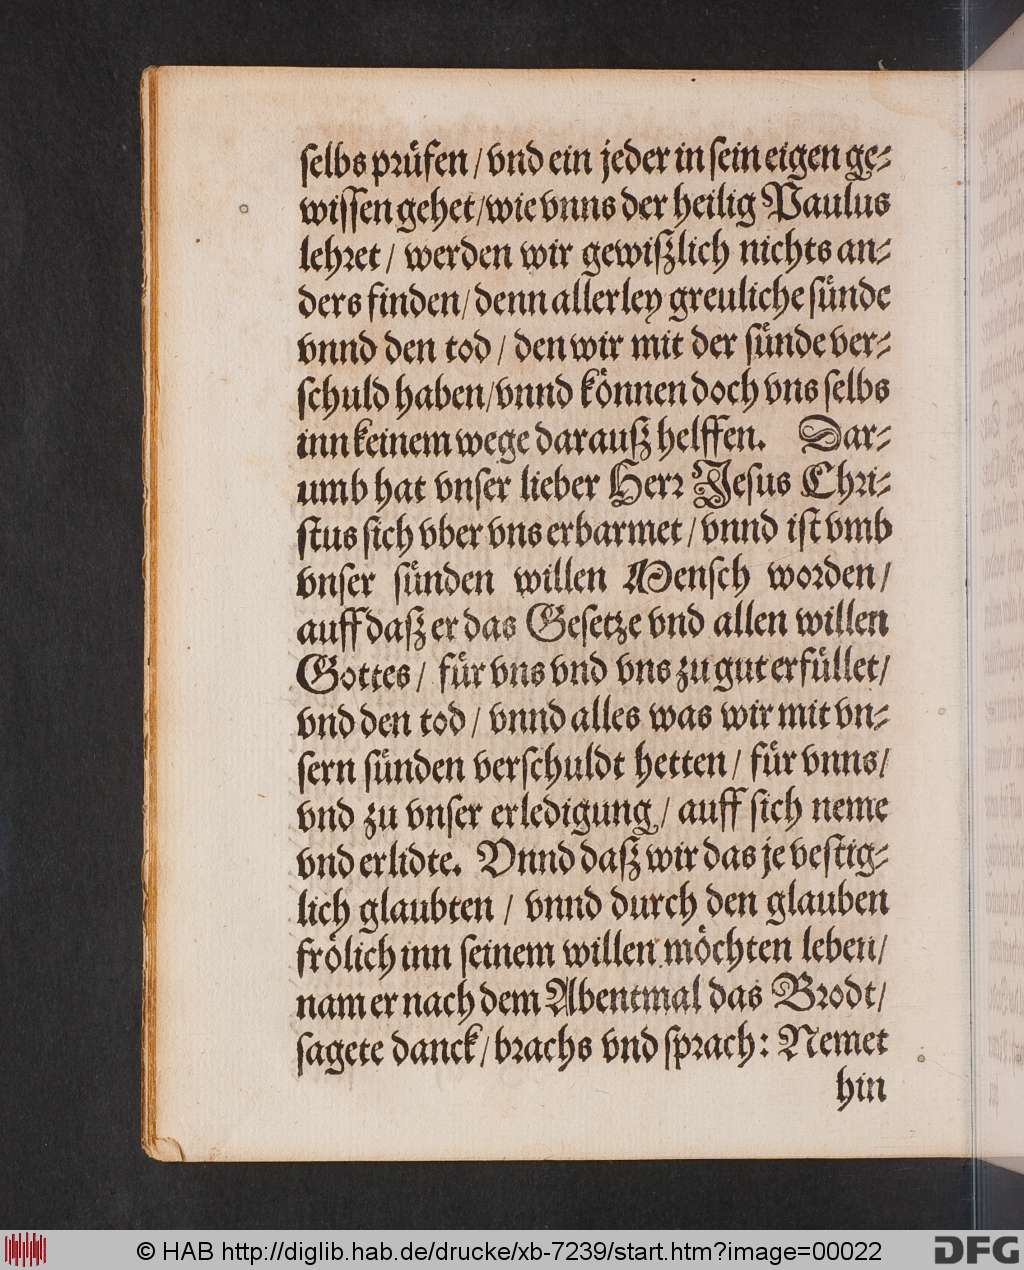 selbs prüfen / vnd ein jeder in sein eigen ge⸗
wissen gehet / wie vnns der heilig Paulus
lehret / werden wir gewißlich nichts an⸗
ders finden / denn allerley greuliche sünde
vnnd den tod / den wir mit der sünde ver⸗
schuld haben / vnnd können doch vns selbs
inn keinem wege darauß helffen. Dar⸗
umb hat vnser lieber Herr Jesus Chri⸗
stus sich vber vns erbarmet / vnnd ist vmb
vnser sünden willen Mensch worden /
auff daß er das Gesetze vnd allen willen
Gottes / für vns vnd vns zu gut erfüllet /
vnd den tod / vnnd alles was wir mit vn⸗
sern sünden verschuldt hetten / für vnns /
vnd zu vnser erledigung / auff sich neme
vnd erlidte. Vnnd daß wir das je vestig⸗
lich glaubten / vnnd durch den glauben
frölich inn seinem willen möchten leben /
nam er nach dem Abentmal das Brodt /
sagete danck / brachs vnd sprach: Nemet
hin
© HAB http://diglib.hab.de/drucke/xb-7239/start.htm?image=00022
DFG